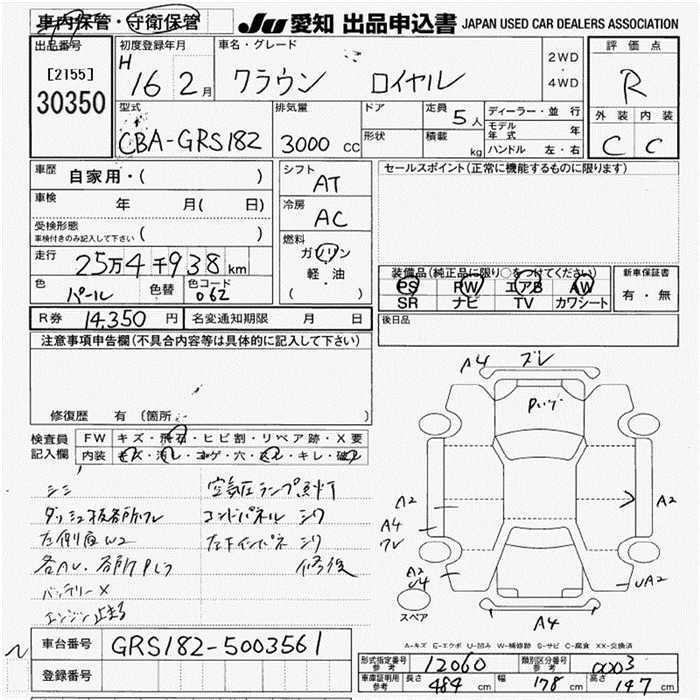 車内保管・守衛保管
JU 愛知 出品申込書 JAPAN USED CAR DEALERS ASSOCIATION
出品番号
[2155]
30350
初度登録年月
H 16 2月
車名・グレード
クラウン ロイヤル
2WD
・
4WD
評価点
R
外装 内装
C C
型式
CBA-GRS182
排気量
3000 cc
ドア
形状
定員 5人
積載 kg
ディーラー・並行
モデル年式 年
ハンドル 左・右
車歴
自家用・( )
車検 年 月( 日)
受検形態
車検付きのみ記入して下さい ( )
走行
25万4千938km
色
パール
色替
色コード
062
シフト
AT
冷房
AC
燃料
ガソリン
軽・油
( )
セールスポイント(正常に機能するものに限ります)
装備品(純正品に限り○をつけてください)
PS PW エアB AW
SR ナビ TV カワシート
新車保証書
有・無
後日品
R券 14,350 円
名変通知期限 月 日
注意事項申告欄(不具合内容等は具体的に記入して下さい)
修復歴 有(箇所 )
検査員記入欄
FW キズ・飛石・ヒビ割・リペア跡・X要
内装 キズ・汚レ・コゲ・穴・ヌレ・キレ・破レ
シミ
空気圧ランプ点灯
ダッシュ板各所ワレ
コンドパネル シワ
左側面W2
左下インパネ シワ
各AU、各所Pレワ
修後
バッテリーX
エンジン止まる
A4 ズレ
Pハゲ
A2
A4
ワレ
A2
U4
A2
UA2
A4
スペア
A-キズ E-エクボ U-凹み W-補修跡 S-サビ C-腐食 XX-交換済
車台番号 GRS182-5003561
登録番号
形式指定番号 参考 12060
類別区分番号 参考 0003
車庫証明用 参考 長さ 484 cm 幅 178 cm 高さ 147 cm